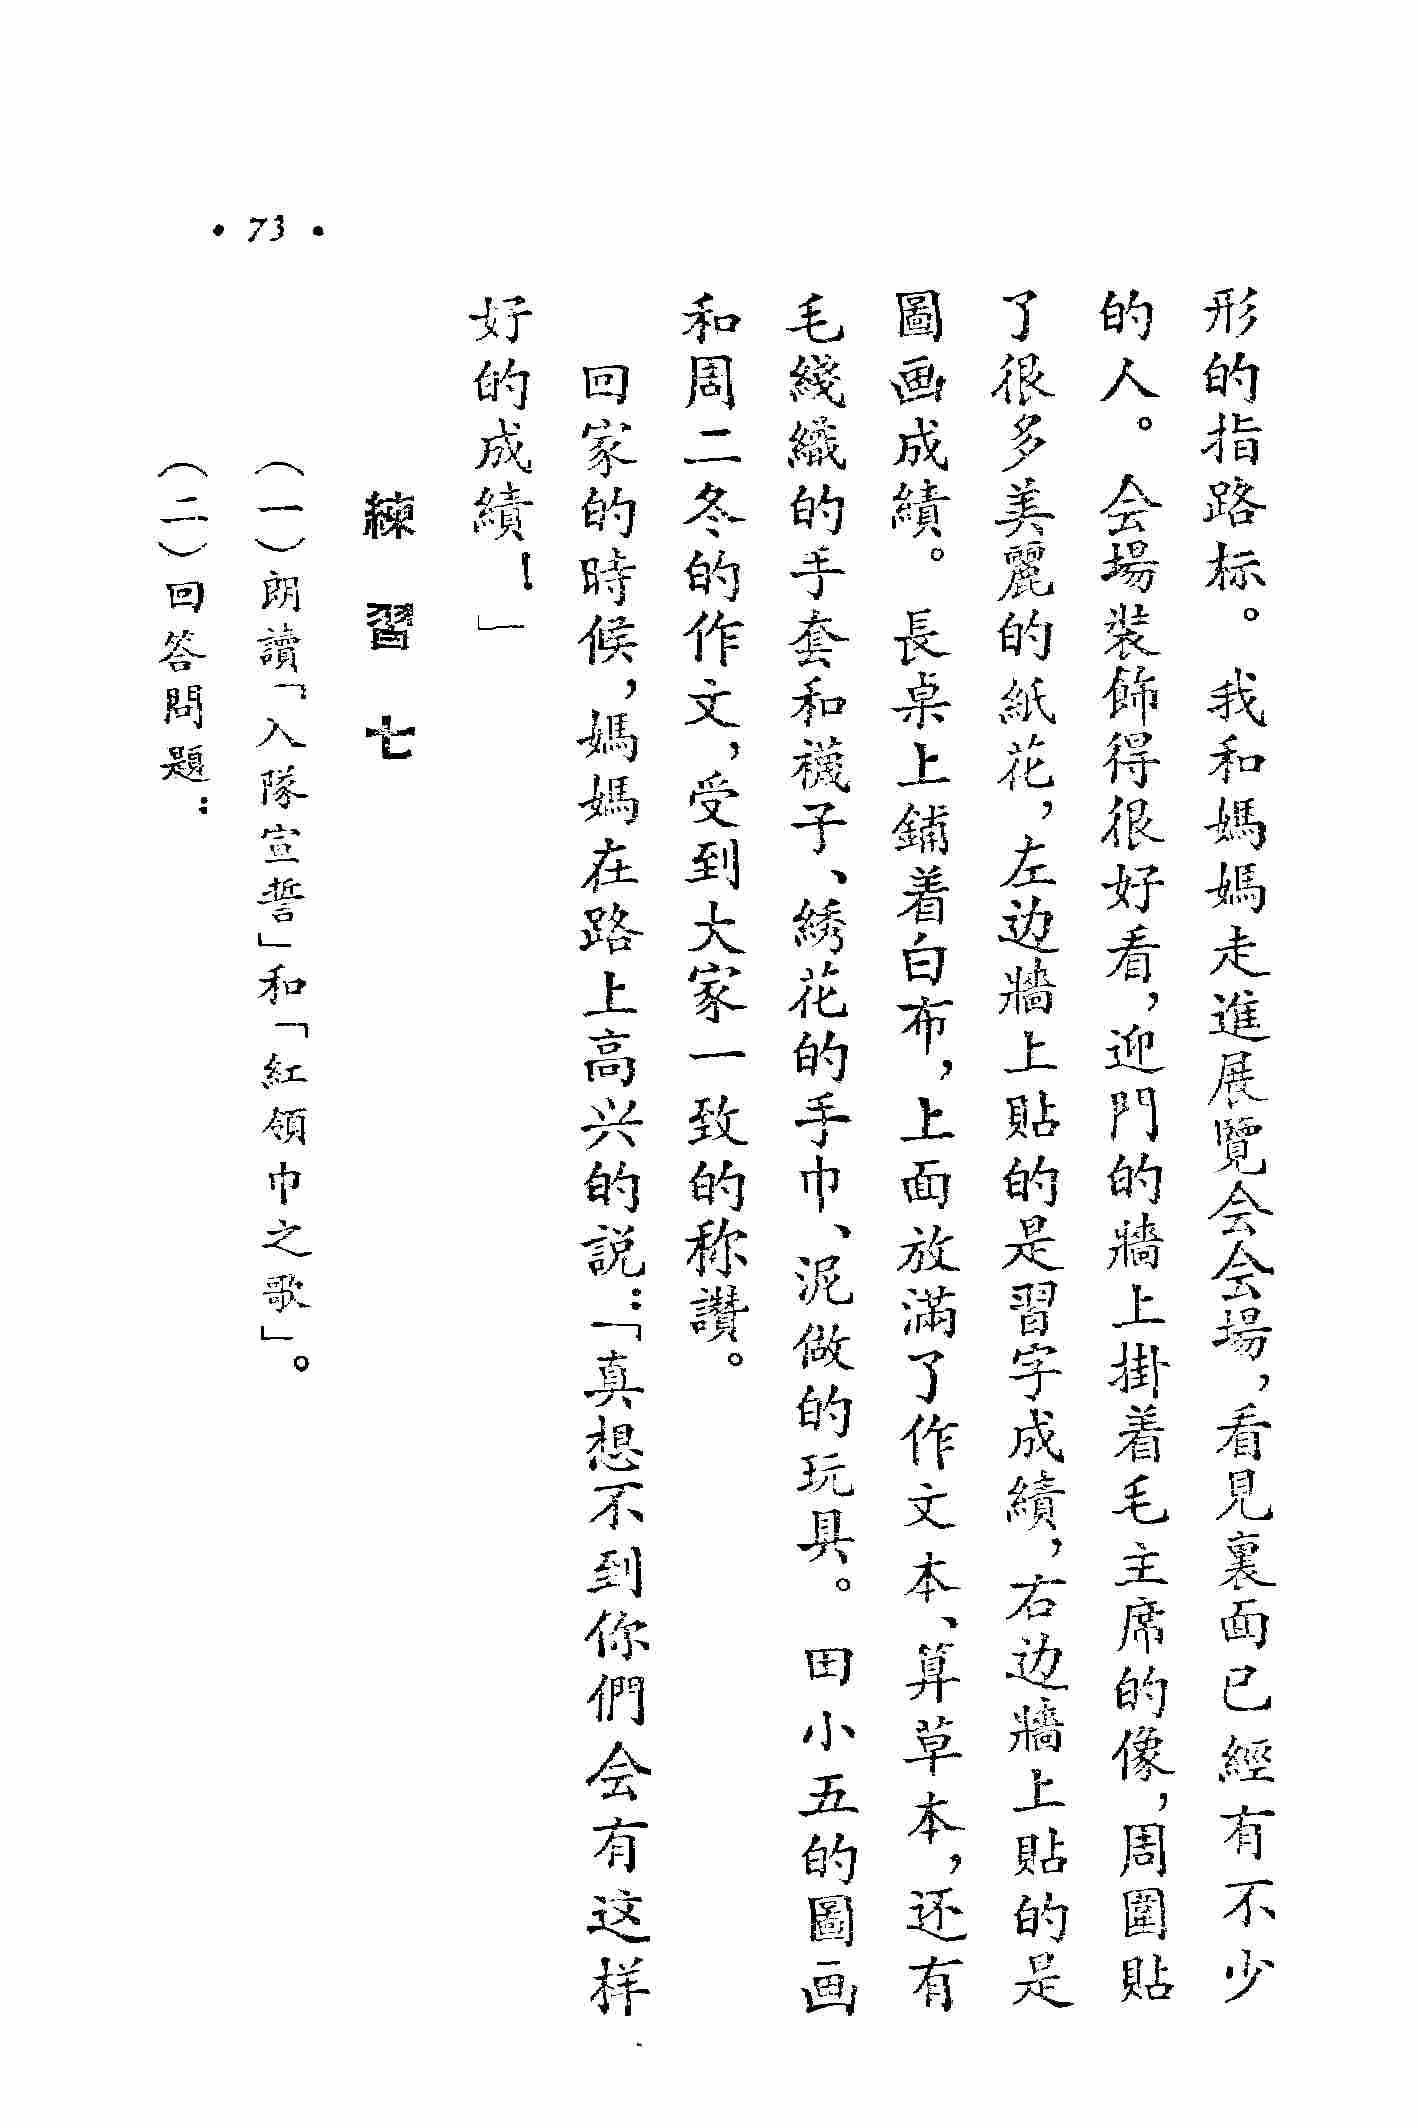 • 73 •
形的指路标。我和媽媽走進展覽会会場，看見裏面已經有不少
的人。会場装飾得很好看，迎門的牆上掛着毛主席的像，周圍貼
了很多美麗的紙花，左边牆上貼的是習字成績，右边牆上貼的是
圖画成績。長桌上鋪着白布，上面放滿了作文本、算草本，还有
毛綫織的手套和襪子、綉花的手巾、泥做的玩具。田小五的圖画
和周二冬的作文，受到大家一致的称讚。
回家的時候，媽媽在路上高兴的説：「真想不到你們会有这样
好的成績！」
練習七
（一）朗讀「入隊宣誓」和「紅領巾之歌」。
（二）回答問題：